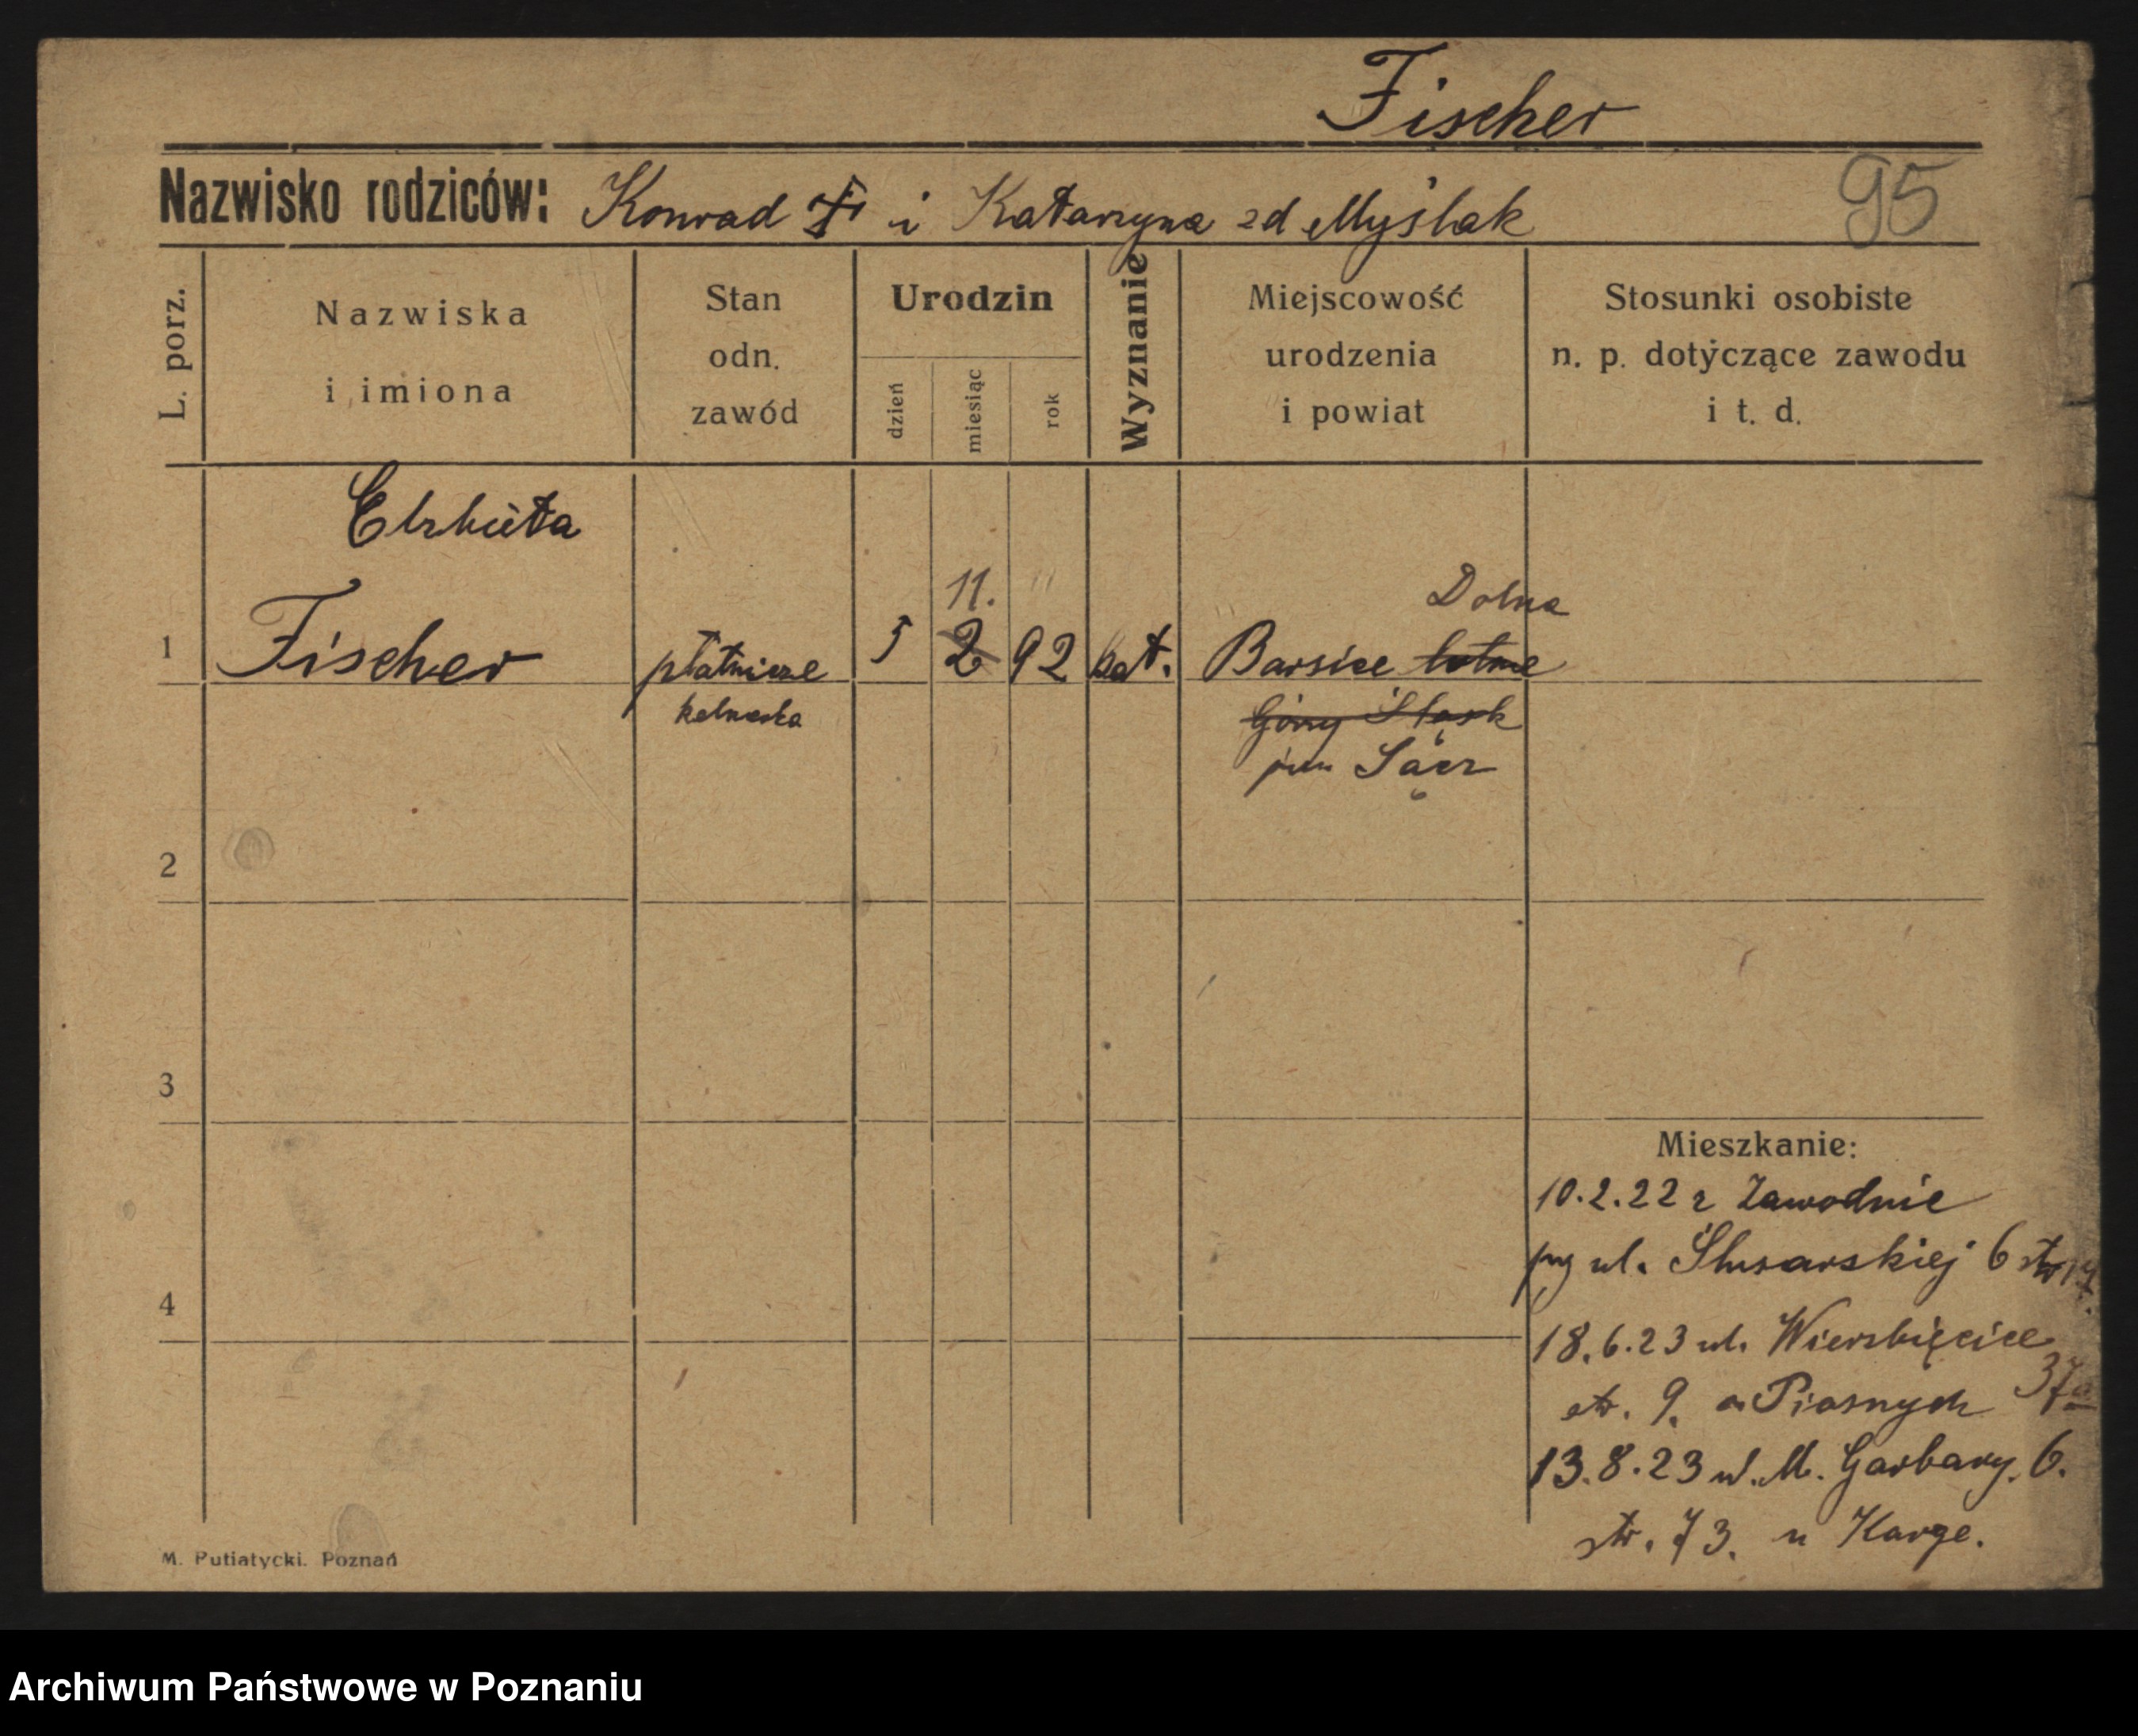 Fischer
Nazwisko rodziców: Konrad F i Katarzyna zd Myślak
95
L. porz.
Nazwiska
i imiona
Stan
odn.
zawód
Urodzin
dzień
miesiąc
rok
Wyznanie
Miejscowość
urodzenia
i powiat
Stosunki osobiste
n. p. dotyczące zawodu
i t. d.
Elzbieta
11.
Dolna
1 Fischer 5 2 92 kat. Barsice
kelnerka Góny Śląsk
pow Sącz
2
3
Mieszkanie:
10.2.22 z Zawodnie
4
ul. Ślusarskiej 6 str 14.
18.6.23 ul. Wierzbięcice
37a
str. 9. a Piasnych
13.8.23 ul. M. Garbary. 6.
str. 73. u Karge.
M. Putiatycki. Poznań
Archiwum Państwowe w Poznaniu